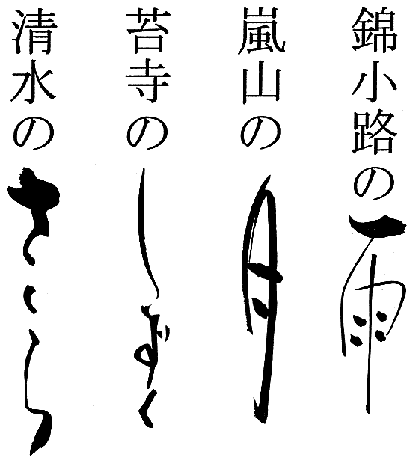 錦小路の雨
嵐山の月
苔寺のしずく
清水のさくら